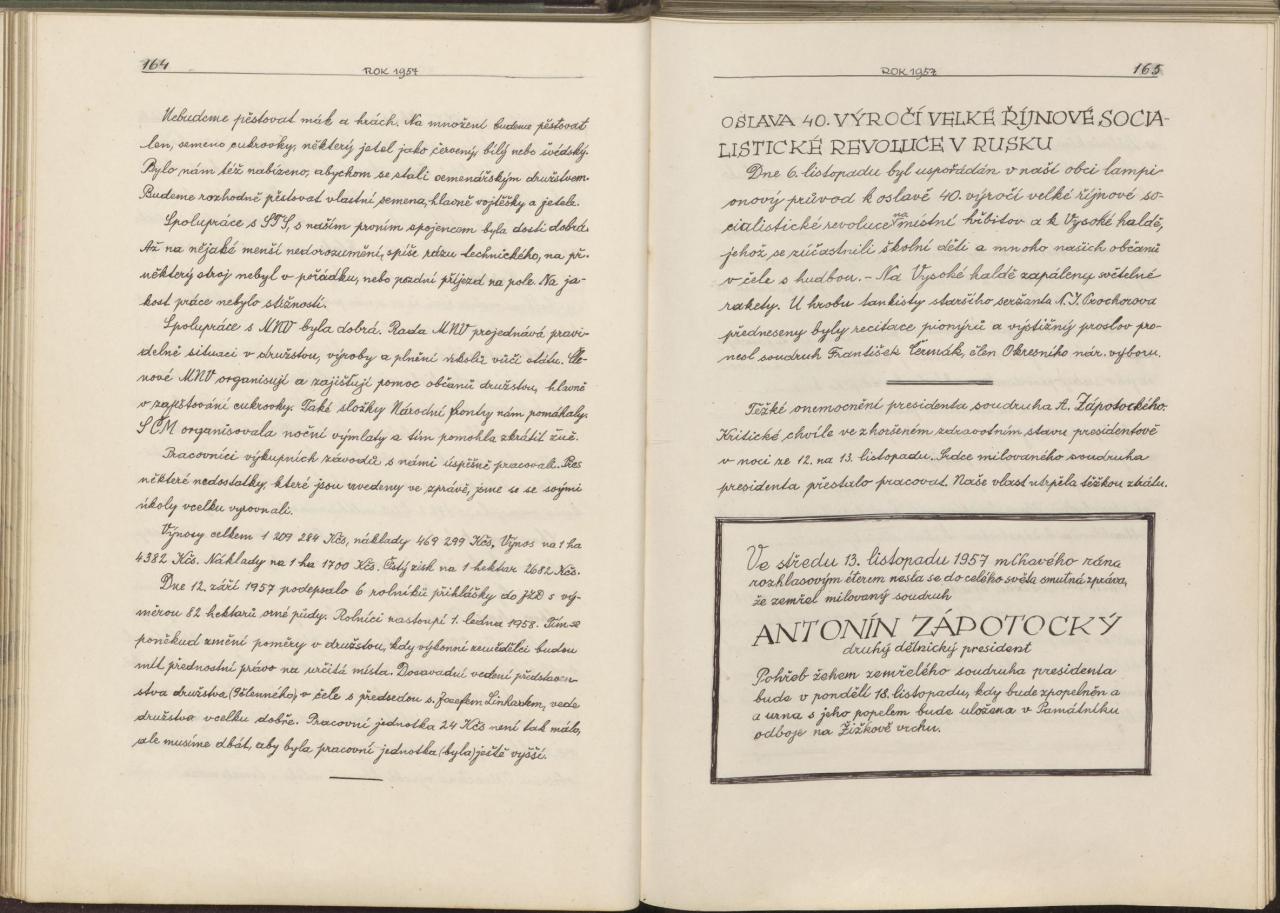 164
ROK 1957
Nebudeme pěstovat mák a hrách. Na množení budeme pěstovat
len, semeno cukrovky, některý jetel jako červený, bílý nebo švédský.
Bylo nám též nabízeno, abychom se stali semenářským družstvem.
Budeme rozhodně pěstovat vlastní semena, hlavně vojtěšky a jetele.
Spolupráce s STS, s naším prvním spojencem byla dosti dobrá.
Až na nějaké menší nedorozumění, spíše rázu technického, na př.
některý stroj nebyl v pořádku, nebo pozdní příjezd na pole. Na ja-
kost práce nebylo stížností.
Spolupráce s MNV byla dobrá. Rada MNV projednává pravi-
delně situaci v družstvu, výroby a plnění úkolů vůči státu. Čle-
nové MNV organisují a zajišťují pomoc občanů družstvu, hlavně
v zapěstování cukrovky. Také složky Národní fronty nám pomáhaly.
SČM organisovala noční výmlaty a tím pomohla zkrátit žně.
Pracovníci výkupních závodů s námi úspěšně pracovali. Přes
některé nedostatky, které jsou uvedeny ve zprávě, jsme se se svými
úkoly vcelku vyrovnali.
Výnosy celkem 1 209 284 Kčs, náklady 469 299 Kčs, Výnos na 1 ha
4382 Kčs. Náklady na 1 ha 1700 Kčs. Čistý zisk na 1 hektar 2682 Kčs.
Dne 12. září 1957 podepsalo 6 rolníků přihlášky do JZD s vý-
měrou 82 hektarů orné půdy. Rolníci nastoupí 1. ledna 1958. Tím se
poněkud změní poměry v družstvu, kdy výkonní zemědělci budou
mít přednostní právo na určitá místa. Dosavadní vedení představen-
stva družstva (9členného), v čele s předsedou s. Josefem Linhartem, vede
družstva vcelku dobře. Pracovní jednotka 24 Kčs není tak málo,
ale musíme dbát, aby byla pracovní jednotka (byla) ještě vyšší.
ROK 1957
165
OSLAVA 40. VÝROČÍ VELKÉ ŘÍJNOVÉ SOCIA-
LISTICKÉ REVOLUCE V RUSKU
Dne 6. listopadu byl uspořádán v naší obci lampi-
onový průvod k oslavě 40. výročí velké říjnové so-
cialistické revoluce na místní hřbitov a k Vysoké haldě,
jehož se zúčastnili školní děti a mnoho našich občanů
v čele s hudbou. - Na Vysoké haldě zapáleny světelné
rakety. U hrobu tankisty staršího seržanta N. I. Prochorova
předneseny byly recitace pionýrů a výstižný proslov pro-
nesl soudruh František Čermák, člen Okresního nár. výboru.
Těžké onemocnění presidenta soudruha A. Zápotockého.
Kritické chvíle ve zhoršeném zdravotním stavu presidentově
v noci ze 12. na 13. listopadu. Srdce milovaného soudruha
presidenta přestalo pracovat. Naše vlast utrpěla těžkou ztrátu.
Ve středu 13. listopadu 1957 mlhavého rána
rozhlasovým éterem nesla se do celého světa smutná zpráva,
že zemřel milovaný soudruh
ANTONÍN ZÁPOTOCKÝ
druhý dělnický president
Pohřeb žehem zemřelého soudruha presidenta
bude v pondělí 18. listopadu, kdy bude zpopelněn a
a urna s jeho popelem bude uložena v Památníku
odboje na Žižkově vrchu.